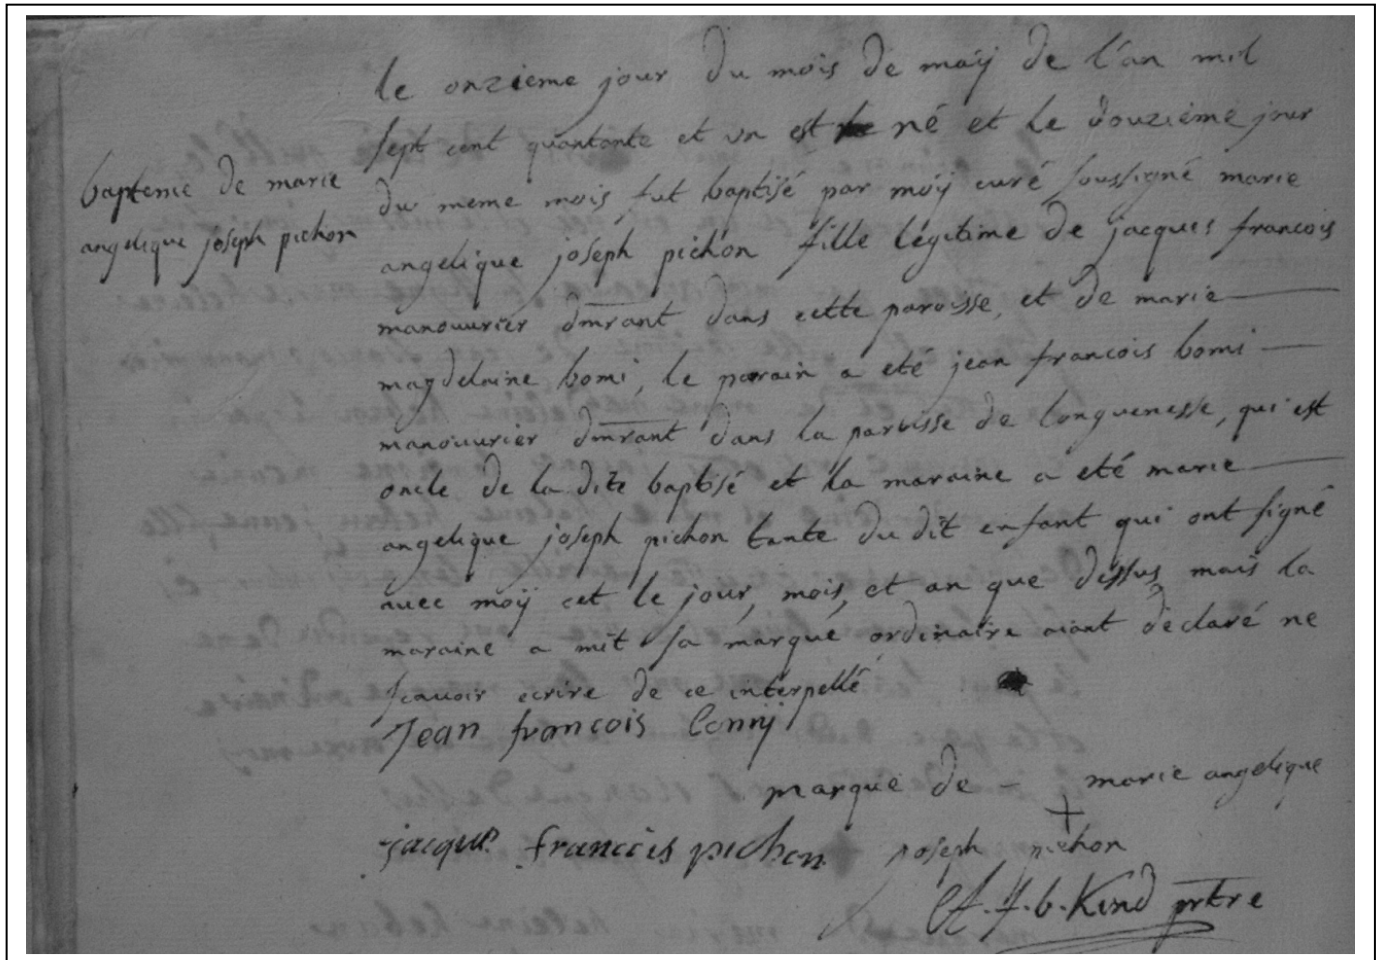 bapteme de marie
angelique joseph pichon
le onzieme jour du mois de maÿ de l'an mil
sept cent quarante et un est né et le douzième jour
du meme mois fut baptisé par moÿ curé soussigné marie
angelique joseph pichon fille légitime de jacques francois
manouvrier dmrant dans cette paroisse, et de marie
magdelaine bomi, le parain a eté jean francois bomi
manouvrier dmrant dans la paroisse de longuenesse, qui est
oncle de la dite baptisé et la maraine a eté marie
angelique joseph pichon tante du dit enfant qui ont signé
avec moÿ cet le jour, mois, et an que dessus mais la
maraine a mit sa marque ordinaire aiant déclaré ne
scavoir ecrire de ce interpellé
Jean francois
marque de - marie angelique
joseph pichon
jacque francois pichon
Kind prtre